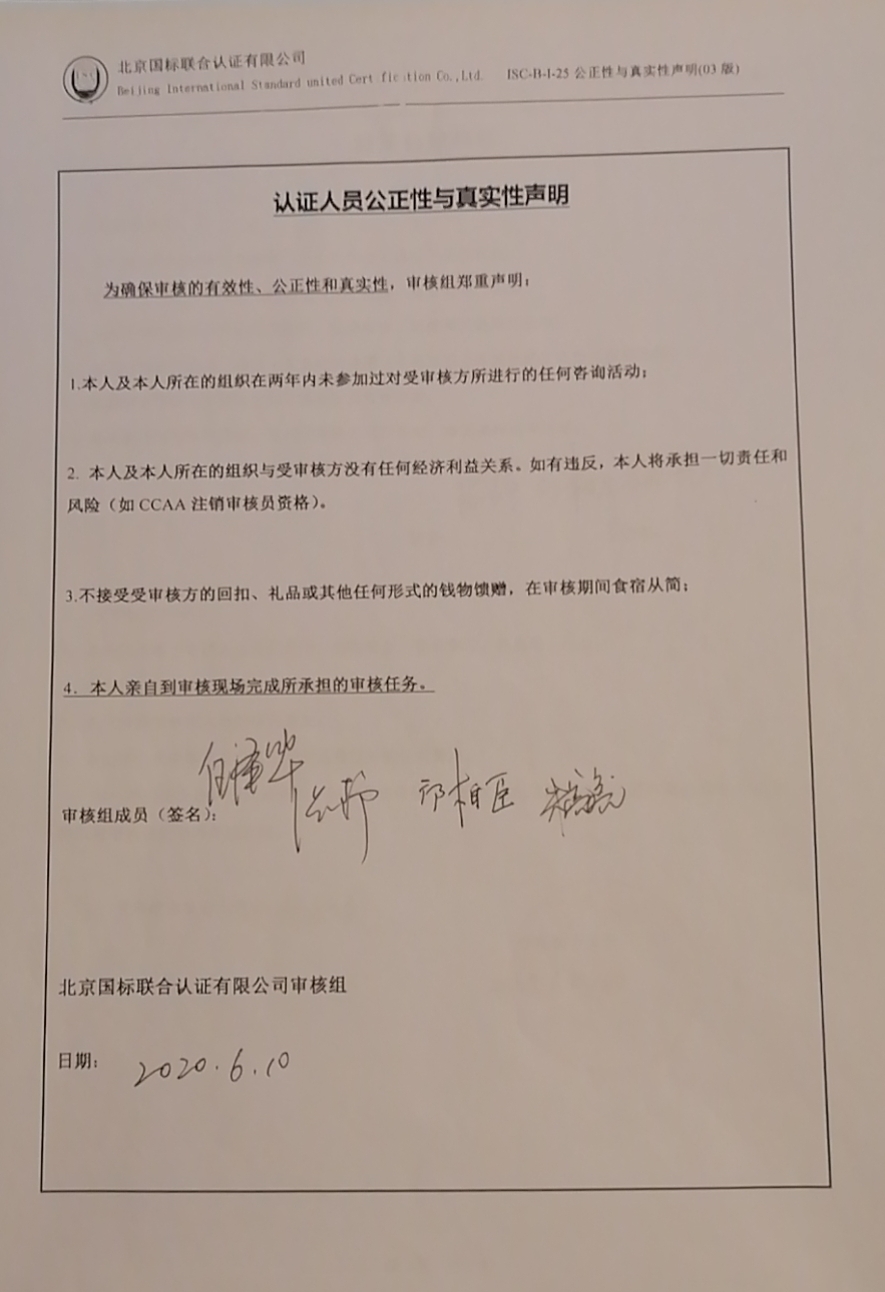 北京国标联合认证有限公司
Beijing International Standard united Cert fic tion Co.,Ltd. ISC-B-I-25 公正性与真实性声明(03 版)
认证人员公正性与真实性声明
为确保审核的有效性、公正性和真实性，审核组郑重声明：
1.本人及本人所在的组织在两年内未参加过对受审核方所进行的任何咨询活动；
2. 本人及本人所在的组织与受审核方没有任何经济利益关系。如有违反，本人将承担一切责任和
风险（如 CCAA 注销审核员资格）。
3.不接受受审核方的回扣、礼品或其他任何形式的钱物馈赠，在审核期间食宿从简；
4. 本人亲自到审核现场完成所承担的审核任务。
审核组成员（签名）：
北京国标联合认证有限公司审核组
日期： 2020.6.10